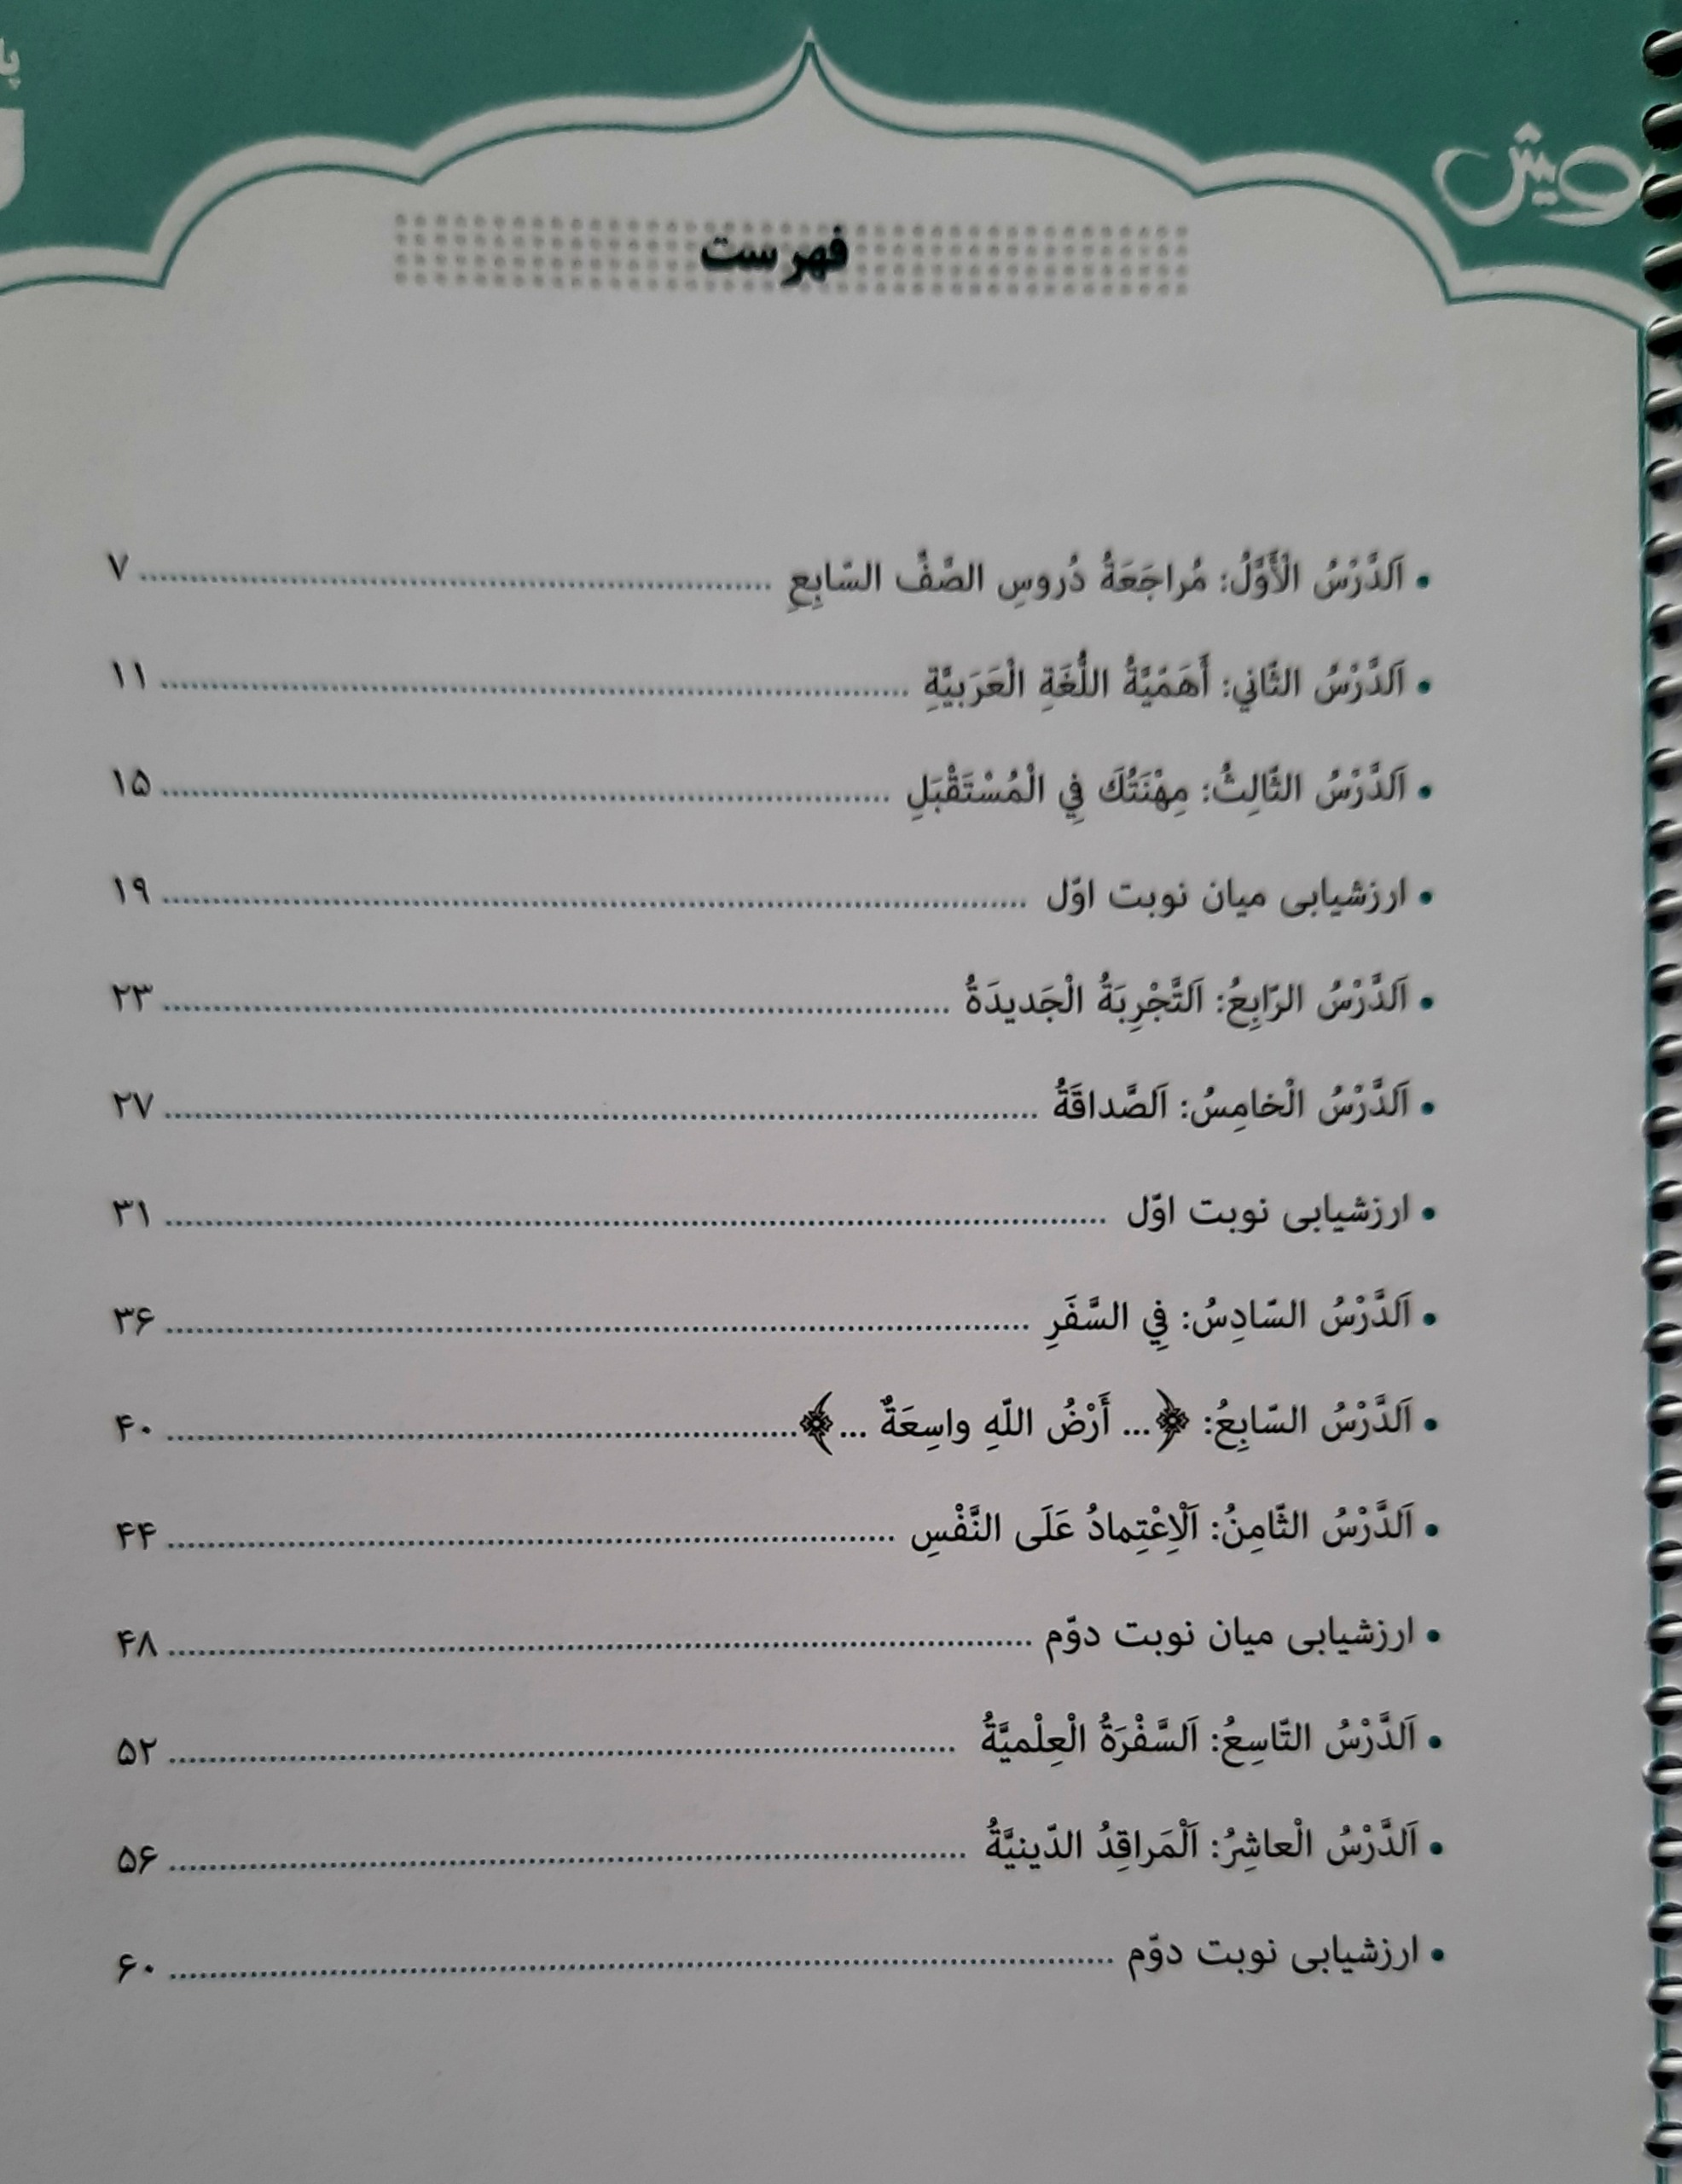 فهرست
• اَلدَّرْسُ الْأَوَّلُ: مُراجَعَةُ دُروسِ الصَّفِّ السّابِعِ ........ ۷
• اَلدَّرْسُ الثّاني: أَهَمّيَّةُ اللُّغَةِ الْعَرَبيَّةِ ........ ۱۱
• اَلدَّرْسُ الثّالِثُ: مِهْنَتُكَ فِي الْمُسْتَقْبَلِ ........ ۱۵
• ارزشیابی میان نوبت اوّل ........ ۱۹
• اَلدَّرْسُ الرّابِعُ: اَلتَّجْرِبَةُ الْجَديدَةُ ........ ۲۳
• اَلدَّرْسُ الْخامِسُ: اَلصَّداقَةُ ........ ۲۷
• ارزشیابی نوبت اوّل ........ ۳۱
• اَلدَّرْسُ السّادِسُ: فِي السَّفَرِ ........ ۳۶
• اَلدَّرْسُ السّابِعُ: ﴿... أَرْضُ اللّهِ واسِعَةٌ ...﴾ ........ ۴۰
• اَلدَّرْسُ الثّامِنُ: اَلْاِعْتِمادُ عَلَى النَّفْسِ ........ ۴۴
• ارزشیابی میان نوبت دوّم ........ ۴۸
• اَلدَّرْسُ التّاسِعُ: اَلسَّفْرَةُ الْعِلْميَّةُ ........ ۵۲
• اَلدَّرْسُ الْعاشِرُ: اَلْمَراقِدُ الدّينيَّةُ ........ ۵۶
• ارزشیابی نوبت دوّم ........ ۶۰